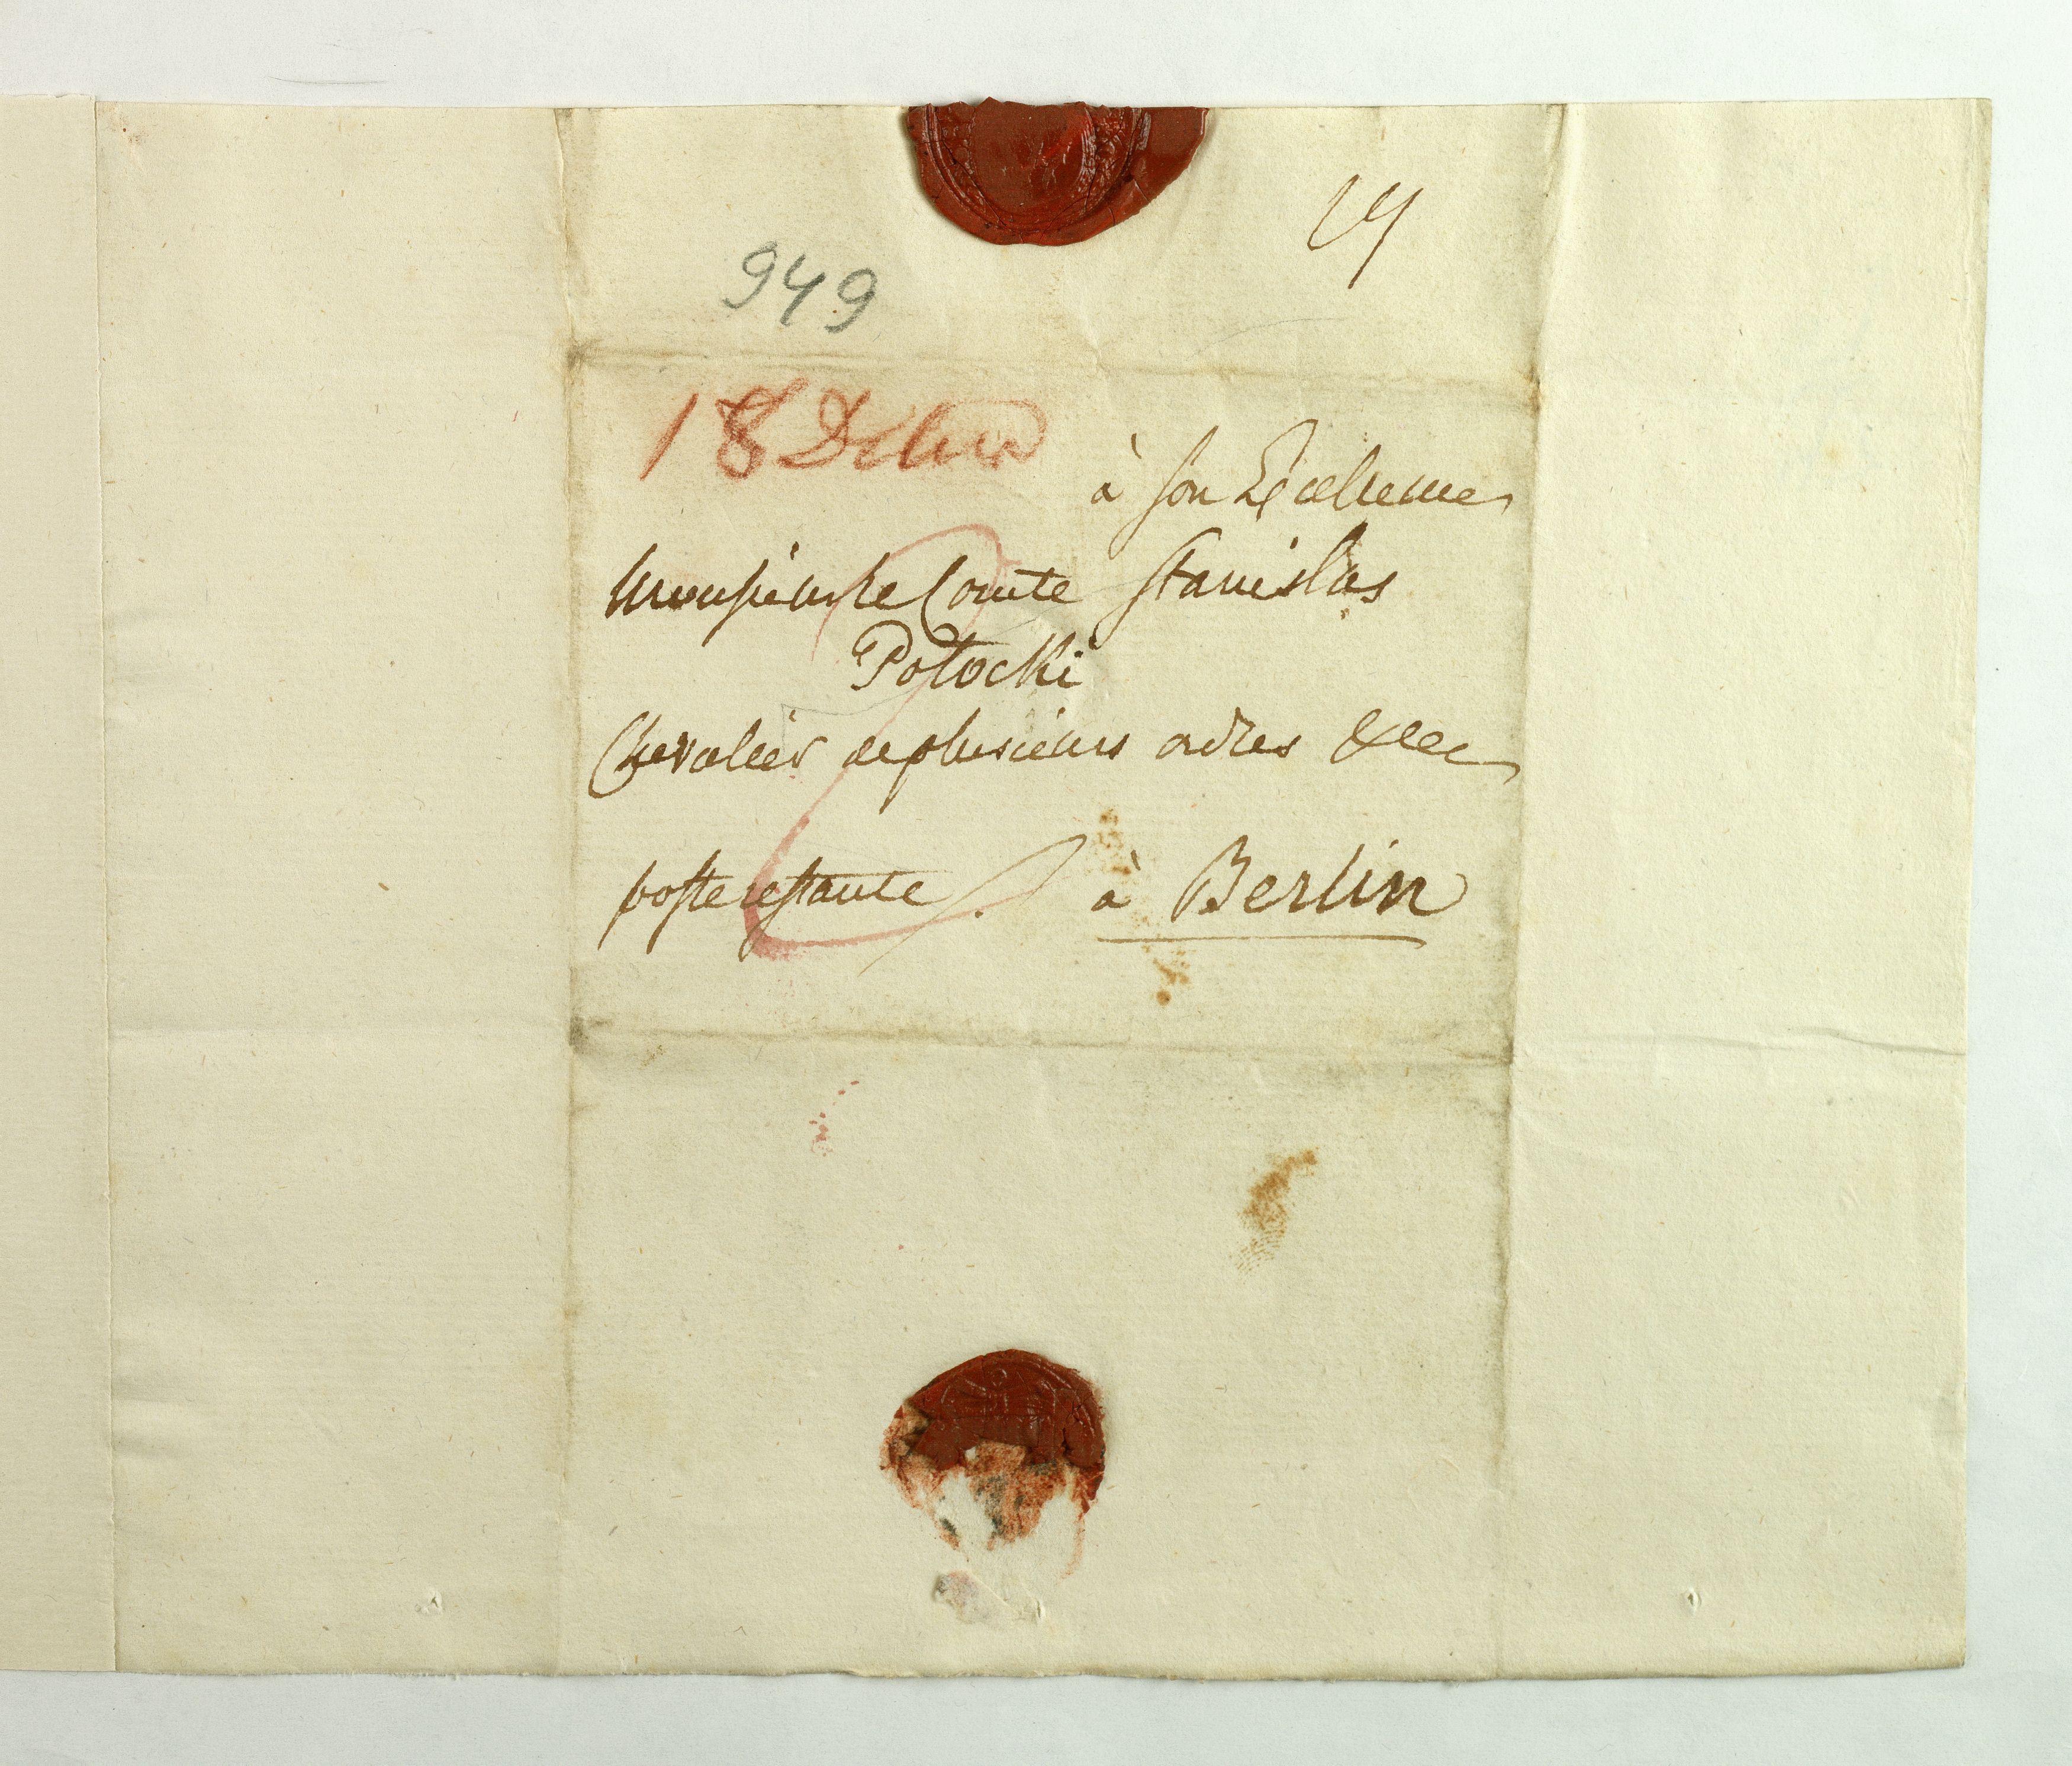 949
18 Debr
à son Excellence
Monsieur le Comte Stanislas
Potocki
Chevalier de plusieurs ordres &cc
poste restante à Berlin